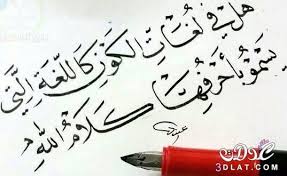 هَل فِي لُغَاتِ الكَونِ كَاللُّغَةِ الَّتِي
يَسْمُو بِأَحْرُفِهَا كَلَامُ اللهِ
3DLAT.COM